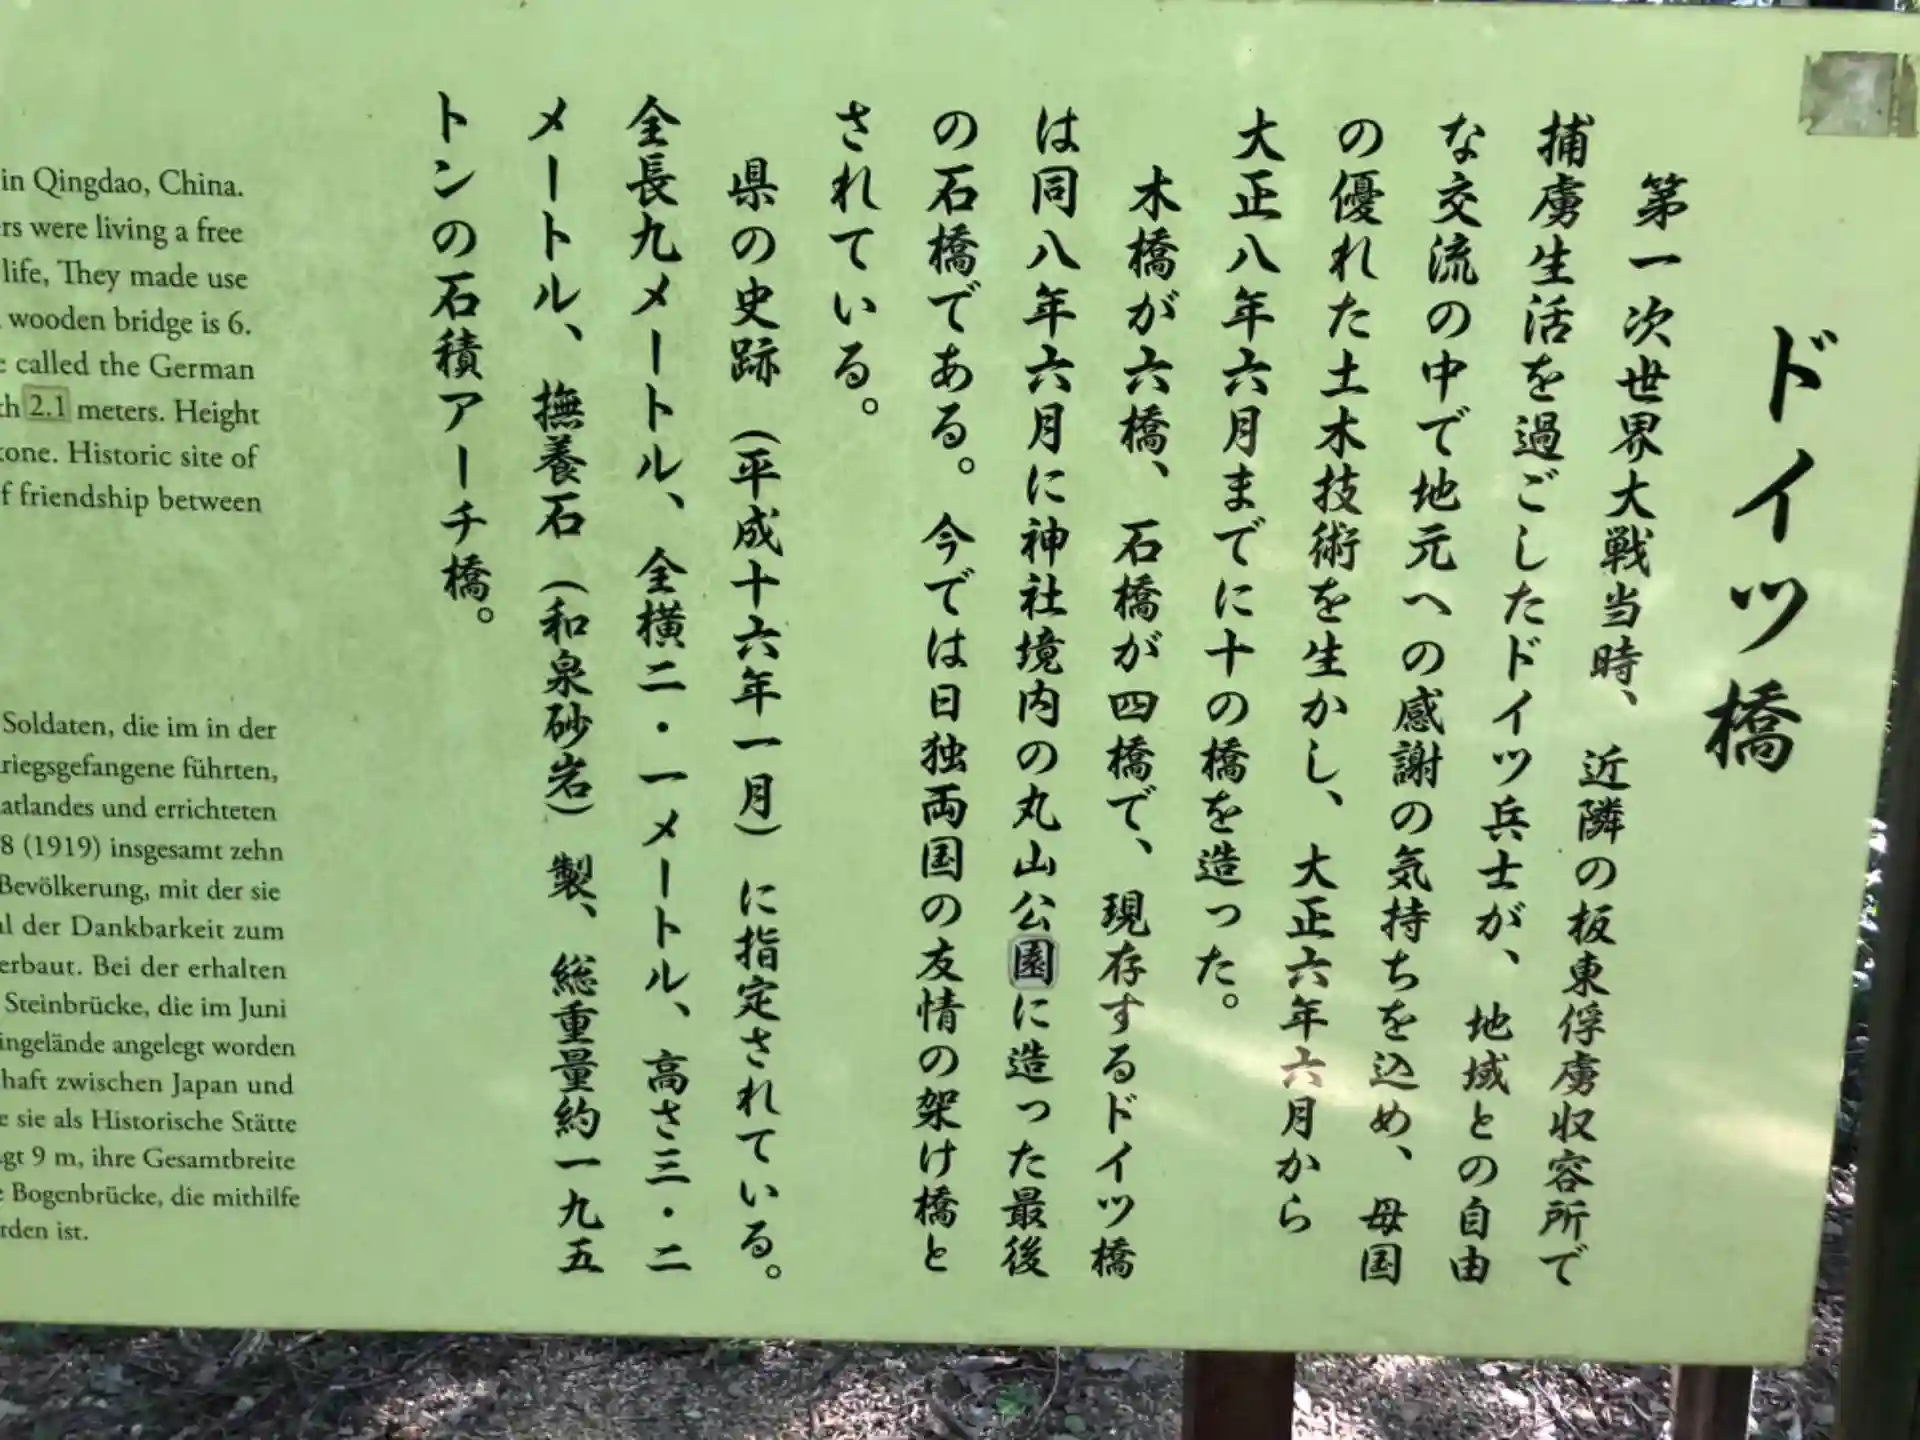 ドイツ橋
第一次世界大戦当時、近隣の板東俘虜収容所で
捕虜生活を過ごしたドイツ兵士が、地域との自由
な交流の中で地元への感謝の気持ちを込め、母国
の優れた土木技術を生かし、大正六年六月から
大正八年六月までに十の橋を造った。
木橋が六橋、石橋が四橋で、現存するドイツ橋
は同八年六月に神社境内の丸山公園に造った最後
の石橋である。今では日独両国の友情の架け橋と
されている。
県の史跡（平成十六年一月）に指定されている。
全長九メートル、全横二・一メートル、高さ三・二
メートル、撫養石（和泉砂岩）製、総重量約一九五
トンの石積アーチ橋。
in Qingdao, China.
were living a free
life, They made use
wooden bridge is 6.
called the German
2.1 meters. Height
Historic site of
friendship between
Soldaten, die im in der
führten,
und errichteten
8 (1919) insgesamt zehn
Bevölkerung, mit der sie
der Dankbarkeit zum
erbaut. Bei der erhalten
Steinbrücke, die im Juni
angelegt worden
zwischen Japan und
sie als Historische Stätte
9 m, ihre Gesamtbreite
Bogenbrücke, die mithilfe
ist.